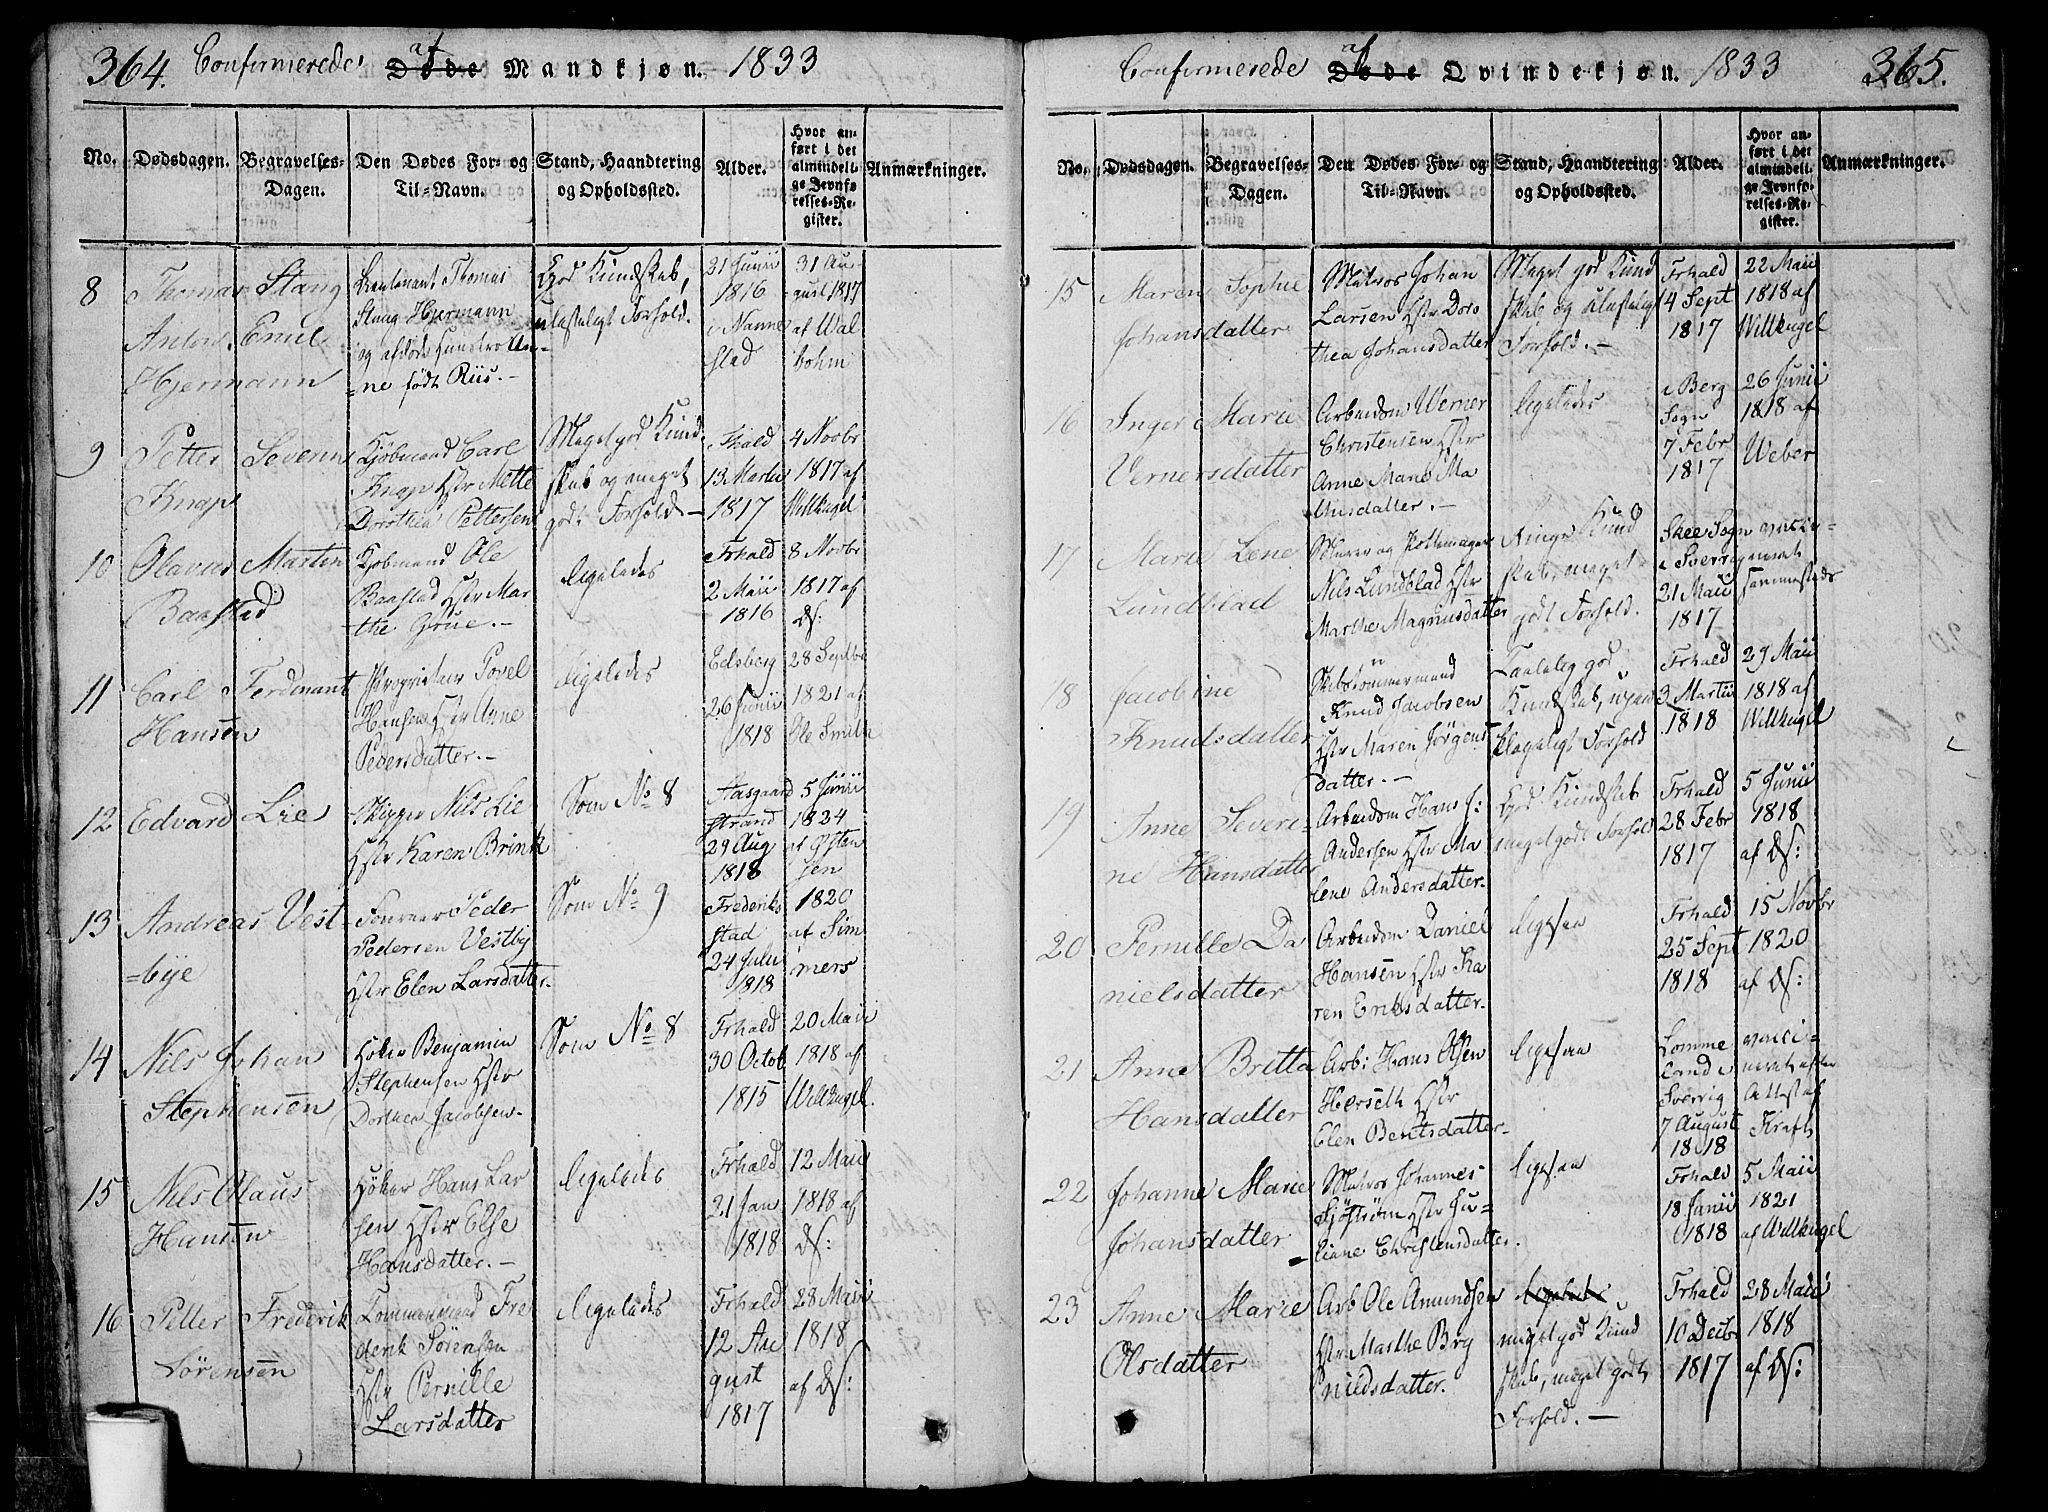 364. Confirmerede af Døde Mandkjøn. 1833
No. Dødsdagen. Begravelses-Dagen. Den Dødes For- og Til-Navn. Stand, Haandtering og Opholdssted. Alder. Hvor anført i det almindelige Jevnførelses-Register. Anmærkninger.
8 Thomas Stang
Anton Emil
Hjermann
Lieutenant Thomas
Stang Hjermann
og afdøde
ne født Riis.-
God Kundskab,
ulasteligt Forhold.
21 Junii
1816
i Nanne
stad
31 Au-
gust 1817
af Wal
bohm
9 Petter Severin
Knap
Kjøbmand Carl
Knap Hstr Mette
Dorothea Pettersen
Meget god Kund
skab og meget
godt Forhold-
Frhald
13 Martii
1817
4 Novbr
1817 af
Willkugel
10 Olavus Martin
Baastad
Kjøbmand Ole
Baastad Hstr Mar
the Grue.-
ligeledes
Frhald
2 Maii
1816
8 Novbr
1817 af
Ds:
11 Carl Ferdinant
Hansen
Proprietær Povel
Hansen Hstr Anne
Pedersdatter.-
ligeledes
Edsberg
26 Junii
1818
28 Septbr
1821 af
Ole Smith
12 Edvard Lie
Skipper Nils Lie
Hstr Karen Brink
Som No 8
Aasgaard
strand
29 Aug
1818
5 Junii
1824
af Østen
sen
13 Andreas Vest-
bye
Peder
Pedersen Vestby
Hstr Elen Larsdatter.
Som No 9
Frederik
stad
24 Julii
1818
1820
af Sim
mers
14 Nils Johan
Stephensen
Høker Benjamin
Stephensen Hstr
Dorthea Jacobsen-
Som No 8
Frhald
30 Octob.
1815
20 Maii
1818 af
Willkugel.
15 Nils Olaus
Hansen
Høker Hans Lar
sen Hstr Else
Hansdatter.-
ligeledes
Frhald
21 Jan
1818
12 Maii
1818 af
Ds:
16 Petter Frederik
Sørensen
Tømmermand Fre
derik Sørensen
Hstr Pernille
Larsdatter
ligeledes
Frhald
12 Au
gust
1817
28 Maii
1818
af Ds:
Confirmerede af Døde Qvindekjøn. 1833 365.
No. Dødsdagen. Begravelses-Dagen. Den Dødes For- og Til-Navn. Stand, Haandtering og Opholdssted. Alder. Hvor anført i det almindelige Jevnførelses-Register. Anmærkninger.
15 Maren Sophie
Johansdatter
Matros Johan
Larsen Hstr Doro
thea Johansdatter
Meget god Kund
skab og ulasteligt
Forhold.-
Frhald
4 Sept
1817
22 Maii
1818 af
Willkugel
16 Inger Marie
Vernersdatter
Arbeidsm Werner
Christensen Hstr
Anne Marie Ma
thisdatter.-
ligeledes
i Berg
Sogn
7 Febr
1817
26 Junii
1818 af
Weber
17 Marie Lene
Lundblad
Murer og Pottemager
Nils Lundblad Hstr
Marthe Magnusdatter
Ringe Kund
skab, meget
godt Forhold.
Skee Sogn
i Sverrig
21 Maii
1817
vacci-
neret
sammesteds
18 Jacobine
Knudsdatter
Skibstømmermand
Knud Jacobsen
Hstr Maren Jørgens
datter.-
Taalelig god
Kundskab, upaa
klageligt Forhold
Frhald
3 Martii
1818
29 Maii
1818 af
Willkugel
19 Anne Severi-
ne Hansdatter
Arbeidsm Hans
Andersen Hstr Ma
lene Andersdatter.
God Kundskab
meget godt Forhold
Frhald
28 Febr
1817
5 Junii
1818
af Ds:
20 Pernille Da
nielsdatter
Arbeidsm: Daniel
Hansen Hstr Ka
ren Eriksdatter.
ligesaa
Frhald
25 Sept
1818
15 Novbr
1820
af Ds:
21 Anne Britta
Hansdatter
Arb: Hans Olsen
Herseth Hstr
Elen Bentsdatter-
ligesaa
Lomme
land i
Sverrig
7 August
1818
vacci-
neret efter
Attest af
Kraft
22 Johanne Marie
Johansdatter
Matros Johannes
Sjøstrøm Hstr Ju-
liane Christensdatter.
ligesaa
Frhald
18 Junii
1818
5 Maii
1821
af Willkugel
23 Anne Marie
Olsdatter
Arb Ole Amundsen
Hstr Marthe Bry
nildsdatter.
ligeledes
meget god Kund
skab, meget godt
Forhold.-
Frhald
10 Decbr
1817
28 Maii
1818
af Ds: